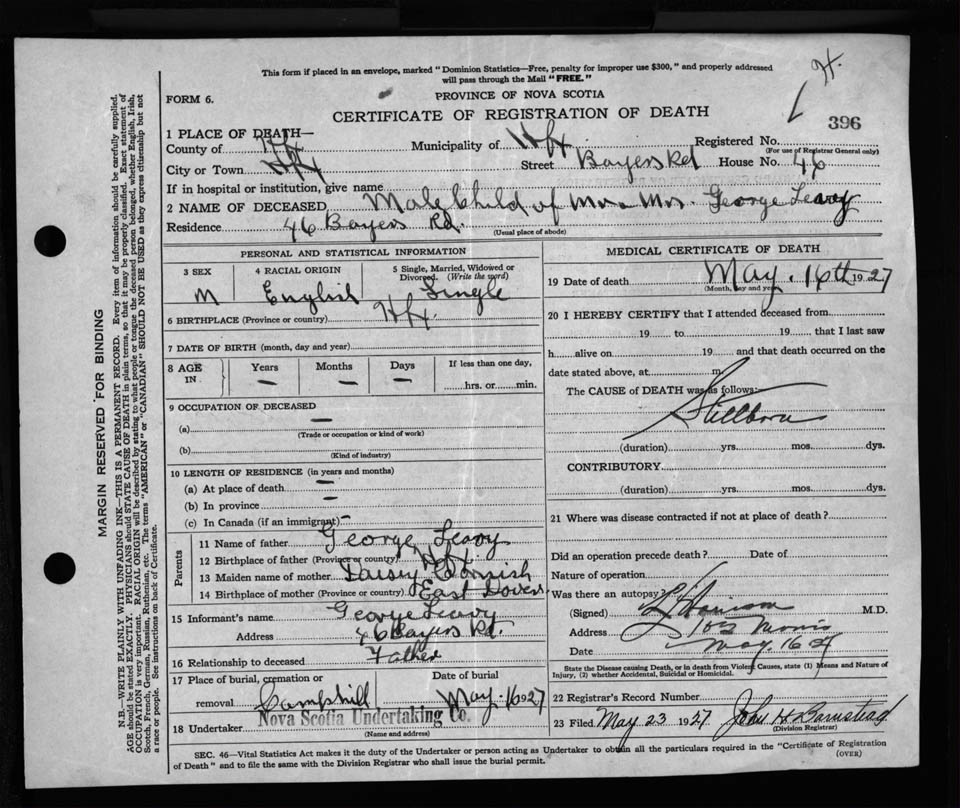 This form if placed in an envelope, marked "Dominion Statistics—Free, penalty for improper use $300," and properly addressed
will pass through the Mail "FREE."
H.
FORM 6.
PROVINCE OF NOVA SCOTIA
CERTIFICATE OF REGISTRATION OF DEATH
396
1 PLACE OF DEATH—
County of Hfx Municipality of Hfx Registered No.
(For use of Registrar General only)
City or Town Hfx Street Bayers Rd House No. 46
If in hospital or institution, give name
2 NAME OF DECEASED Male Child of Mr & Mrs. George Leavy
Residence 46 Bayers Rd.
(Usual place of abode)
PERSONAL AND STATISTICAL INFORMATION
3 SEX 4 RACIAL ORIGIN 5 Single, Married, Widowed or
Divorced. (Write the word)
M English Single
6 BIRTHPLACE (Province or country) Hfx.
7 DATE OF BIRTH (month, day and year)
8 AGE IN Years Months Days If less than one day,
— — — hrs. or min.
9 OCCUPATION OF DECEASED
(a) —
(Trade or occupation or kind of work)
(b)
(Kind of industry)
10 LENGTH OF RESIDENCE (in years and months)
(a) At place of death —
(b) In province —
(c) In Canada (if an immigrant) —
Parents
11 Name of father George Leavy
12 Birthplace of father (Province or country) Hfx.
13 Maiden name of mother Daisey Cornish
14 Birthplace of mother (Province or country) East Dover
15 Informant's name George Leavy
Address 46 Bayers Rd.
16 Relationship to deceased Father
17 Place of burial, cremation or Date of burial
removal Camphill May. 16 1927
18 Undertaker Nova Scotia Undertaking Co.
(Name and address)
MEDICAL CERTIFICATE OF DEATH
19 Date of death May. 16th 1927
(Month, day and year)
20 I HEREBY CERTIFY that I attended deceased from
19 to 19 that I last saw
h alive on 19 and that death occurred on the
date stated above, at m.
The CAUSE of DEATH was as follows:
Stillborn
(duration) yrs. mos. dys.
CONTRIBUTORY
(duration) yrs. mos. dys.
21 Where was disease contracted if not at place of death?
Did an operation precede death? Date of
Nature of operation
Was there an autopsy?
(Signed) M.D.
Address Morris
Date May. 16 27
State the Disease causing Death, or in death from Violent Causes, state (1) Means and Nature of
Injury, (2) whether Accidental, Suicidal or Homicidal.
22 Registrar's Record Number
23 Filed May 23 1927. John H Barnstead
(Division Registrar)
SEC. 46—Vital Statistics Act makes it the duty of the Undertaker or person acting as Undertaker to obtain all the particulars required in the "Certificate of Registration
of Death" and to file the same with the Division Registrar who shall issue the burial permit.
(OVER)
MARGIN RESERVED FOR BINDING
N.B.—WRITE PLAINLY WITH UNFADING INK—THIS IS A PERMANENT RECORD. Every item of information should be carefully supplied.
AGE should be stated EXACTLY. PHYSICIANS should STATE CAUSE OF DEATH in plain terms, so that it may be properly classified. Exact statement of
OCCUPATION is very important. RACIAL ORIGIN will be described by stating to what people or tongue the deceased person belonged, whether English, Irish,
Scotch, French, German, Russian, Ruthenian, etc. The terms "AMERICAN" or "CANADIAN" SHOULD NOT BE USED as they express citizenship but not
a race or people. See instructions on back of Certificate.